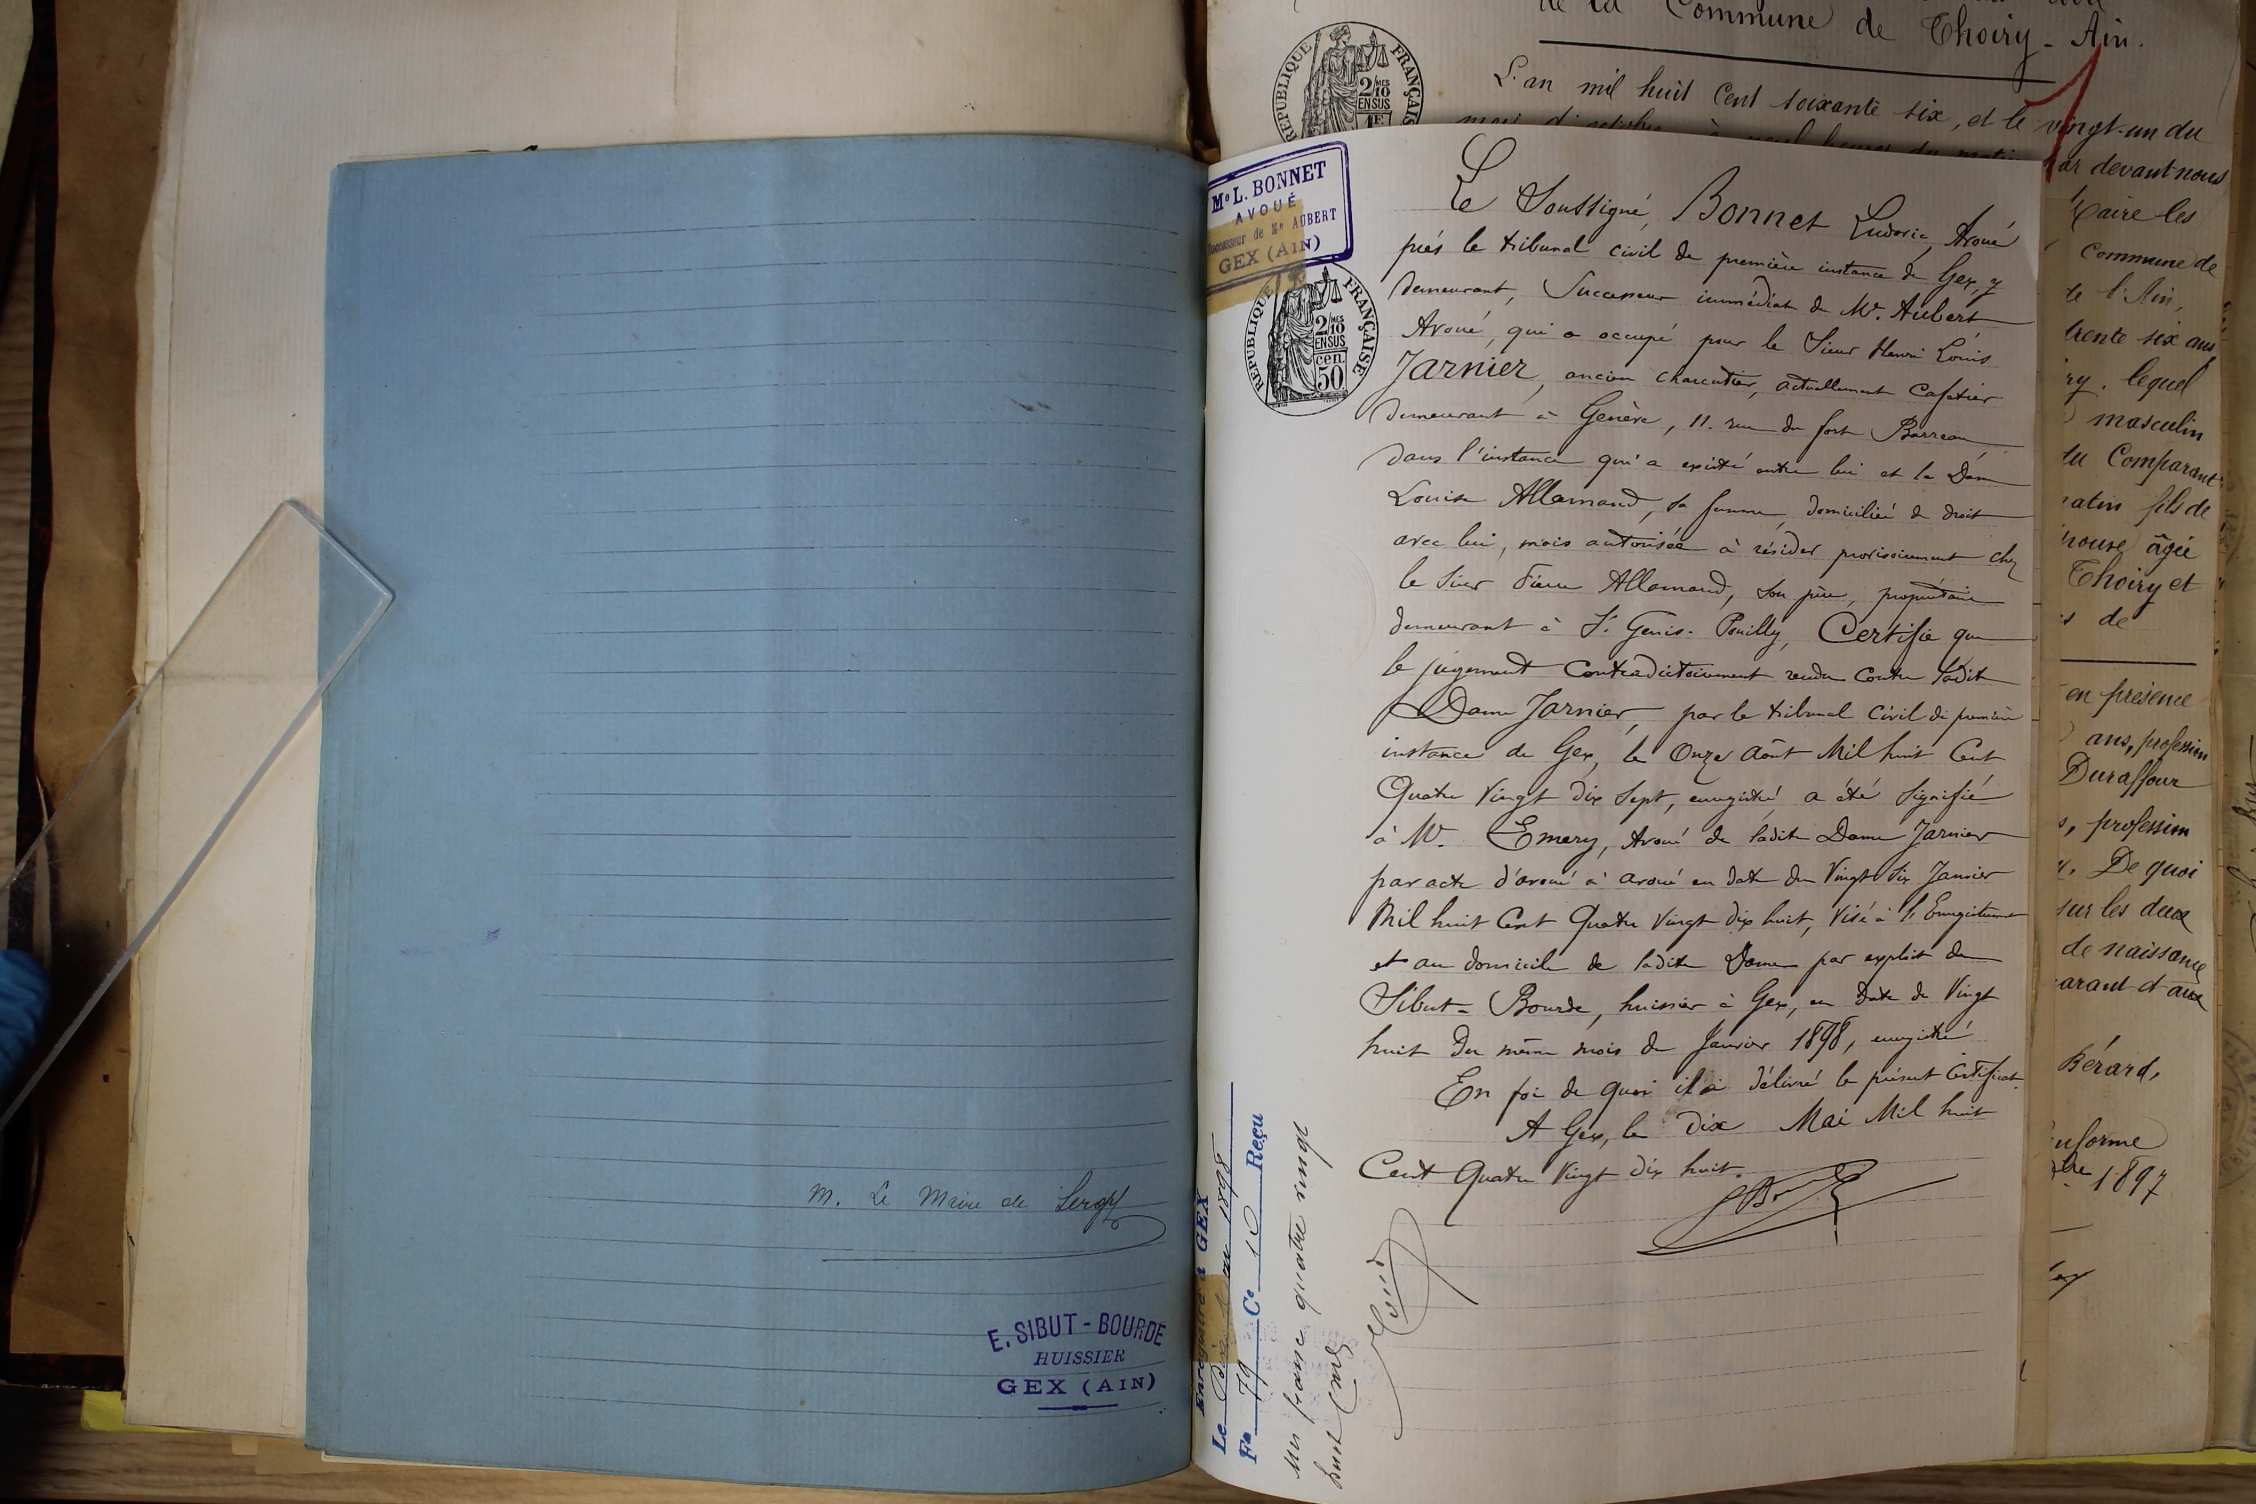 de la Commune de Thoiry - Ain.
L'an mil huit Cent soixante six, et le vingt-un du
par devant nous
Maire les
commune de
de l'Ain,
trente six ans
lequel
masculin
du Comparant
fils de
âgée
Thoiry et
de
en présence
ans, profession
Duraffour
profession
De quoi
sur les deux
de naissance
et aux
Bérard,
1897
REPUBLIQUE FRANÇAISE
2/10 MES
EN SUS
M. Le Maire de Sergy
E. SIBUT - BOURDE
HUISSIER
GEX (AIN)
Me L. BONNET
AVOUÉ
Successeur de Me AUBERT
GEX (AIN)
REPUBLIQUE FRANÇAISE
2/10 MES
EN SUS
cen.
50
Le Soussigné, Bonnet Ludovic, Avoué
près le tribunal civil de première instance de Gex, y
demeurant, Successeur immédiat de Me. Aubert
Avoué, qui a occupé pour le Sieur Henri Louis
Jarnier, ancien charcutier, actuellement cafetier
demeurant à Genève, 11. rue du fort Barreau
dans l'instance qui a existé entre lui et la Dame
Louise Allamand, sa femme, domiciliée de droit
avec lui, mais autorisée à résider provisoirement chez
le Sieur Pierre Allamand, son père, propriétaire
demeurant à St. Genis-Pouilly, Certifie que
le jugement Contradictoirement rendu contre ladite
Dame Jarnier, par le tribunal civil de première
instance de Gex, le Onze Août Mil huit Cent
Quatre Vingt dix Sept, enregistré, a été signifié
à Me. Emery, Avoué de ladite Dame Jarnier
par acte d'avoué à avoué en date du Vingt Six Janvier
Mil huit Cent Quatre Vingt dix huit, visé à l'Enregistrement
et au domicile de ladite Dame par exploit de
Sibut-Bourde, huissier à Gex, en date du Vingt
huit du même mois de Janvier 1898, enregistré
En foi de quoi il a délivré le présent Certificat
A Gex, le Dix Mai Mil huit
Cent Quatre Vingt dix huit.
Enregistré à GEX
Le mai 1898
Fo 79 Ce 10 Reçu
un franc quatre vingt
huit Cmes